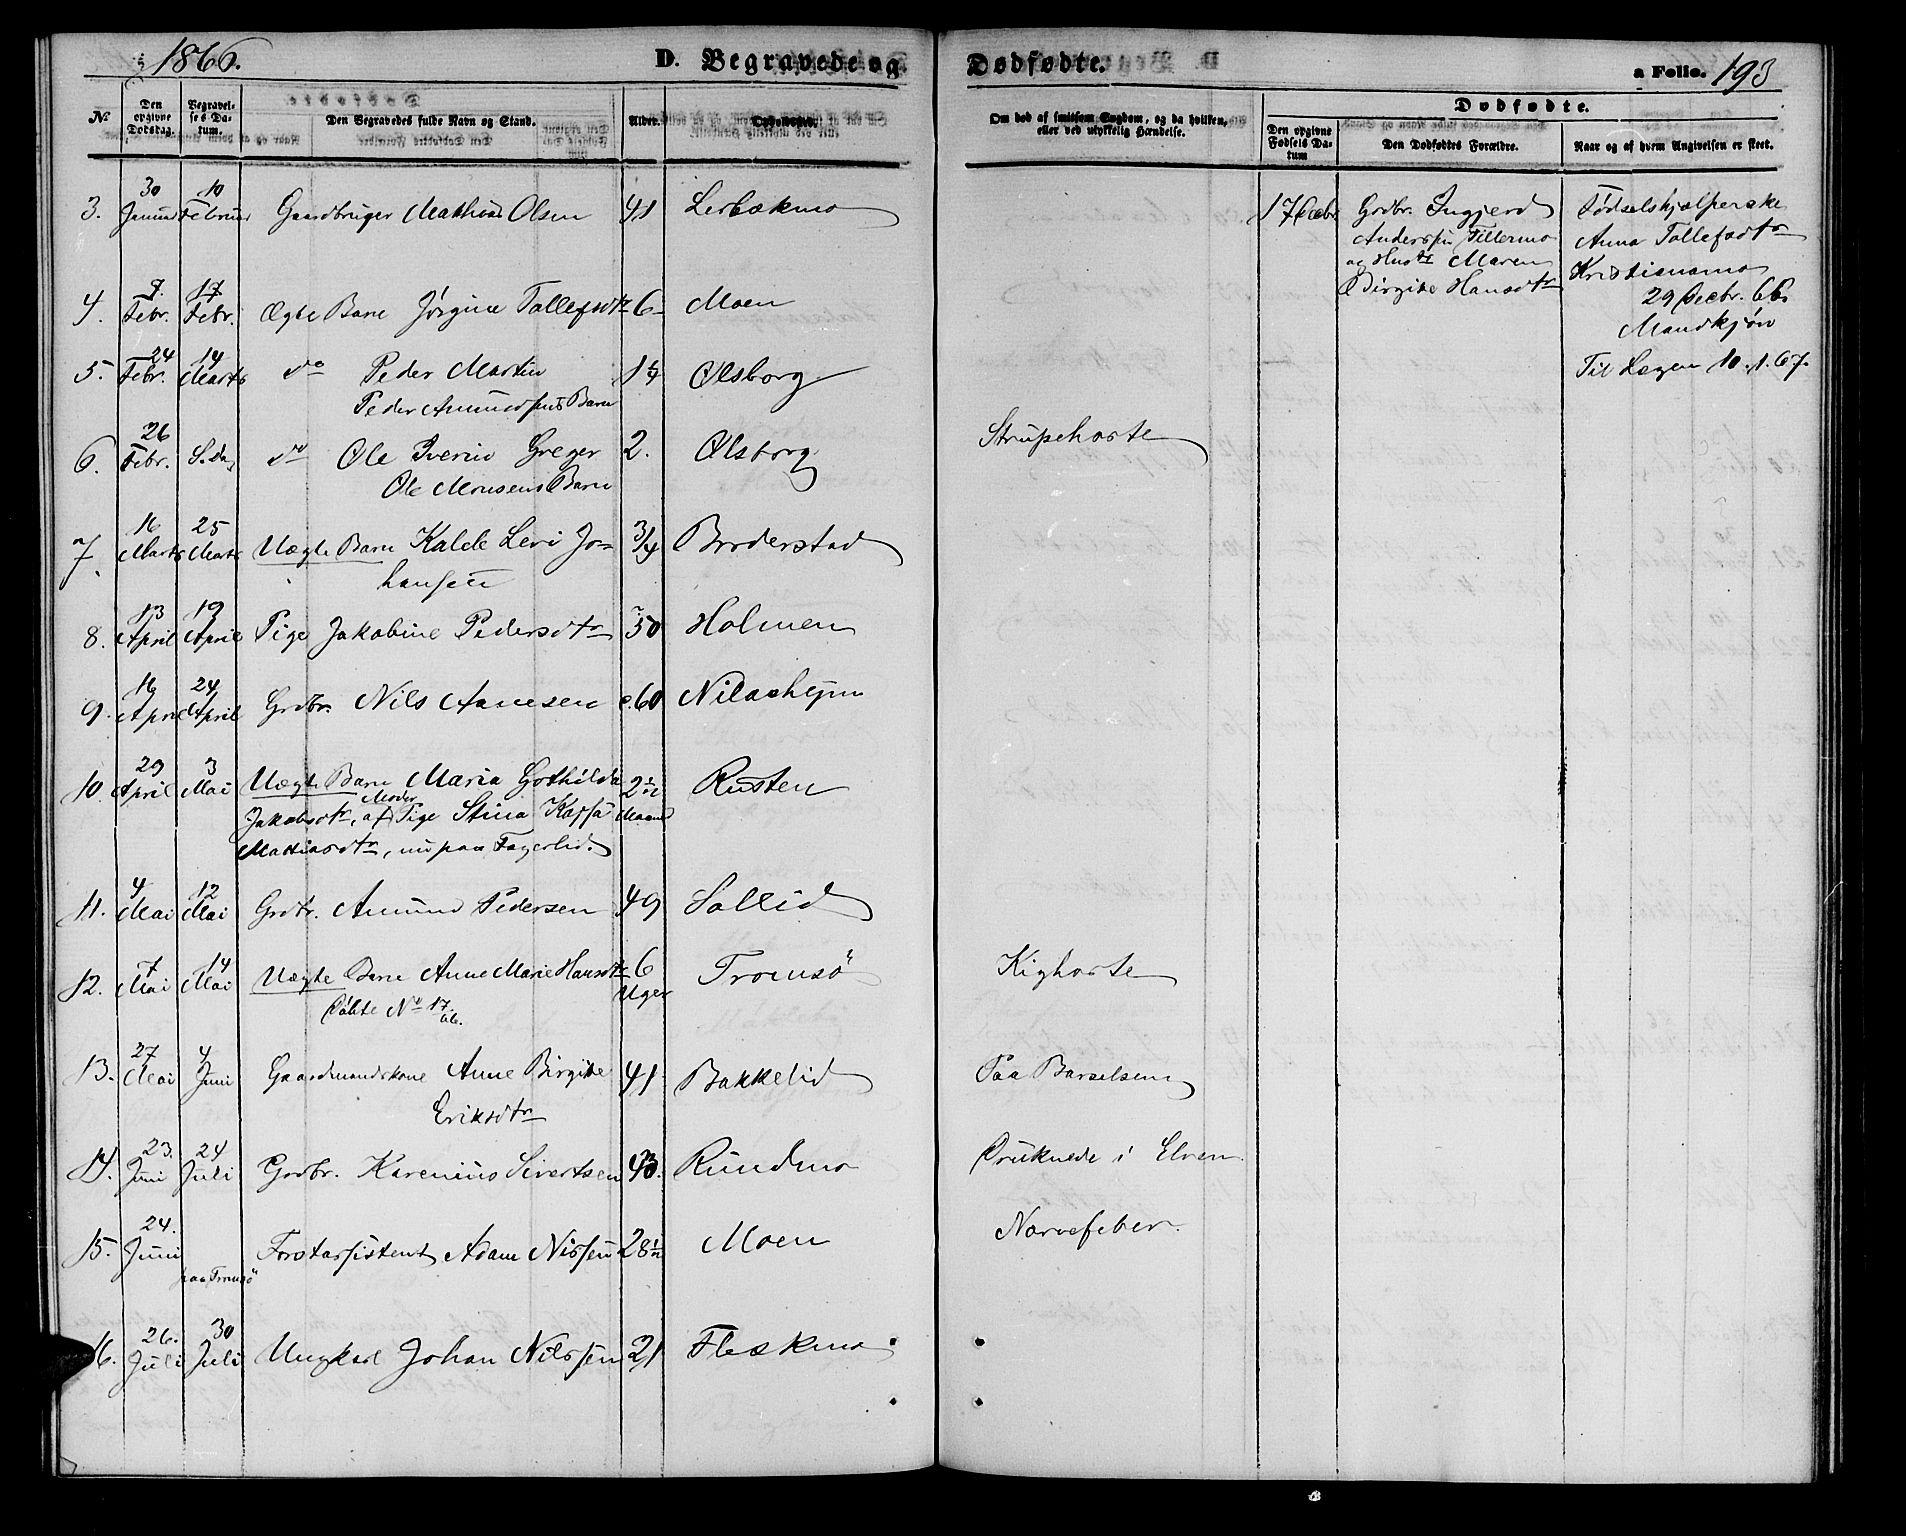 1866.
D. Begravede og Dødfødte.
a Folio. 193
Dødfødte.
No
Den opgivne Dødsdag.
Begravelses Datum.
Den Begravedes fulde Navn og Stand.
Alder.
Opholdssted.
Om død af smitsom Sygdom, og da hvilken, eller ved ulykkelig Hændelse.
Den opgivne Fødsels Datum
Den Dødfødtes Forældre.
Naar og af hvem Angivelsen er skeet.
3. 30 Januar 10 Februar Gaardbruger Mathias Olsen 41 Lerbækmo
17 Decbr. Grdbr. Ingjerd
Anderssen Tillermo
og Hustr Maren
Birgitte Hansdtr
Fødselshjælperske
Anna Tollefsdtr
Kristianamo
29 Decbr. 66
Mandkjøn
Til Lægen 10.1.67.
4. 9. Febr. 17 Febr. Ægte Barn Jørgine Tollefsdtr 6 Moen
5. 24 Febr. 14 Marts do Peder Martin 1¼ Olsborg
Peder Amundsens Barn
6. 26 Febr. S. Dag do Ole Iverin Greger 2. Olsborg Strupehoste
Ole Monsens Barn
7. 16 Marts 25 Marts Uægte Barn Kalde Levi Jo- 3/4 Broderstad
hansen
8. 13 April 19 April Pige Jakobine Pedersdtr 50 Holmen
9. 16 April 24 April Grdbr. Nils Aanesen c.60 Nilashejm
10. 29 April 3 Mai Uægte Barn Maria Gothilda 2½ Maaned Rusten
Jakobsdtr, af Moder Pige Stina Kajsa
Matiasdtr, nu paa Fagerlid.
11. 4 Mai 12 Mai Grdbr. Amund Pedersen 49 Sollid
12. 7 Mai 14 Mai Uægte Barn Anne Marie Hansdtr 6 Uger Tromsø Kighoste
Døbte No 17.
13. 27 Mai 4 Juni Gaardmandskone Anne Birgitte 41 Bakkelid Paa Barselseng
Eriksdtr
14. 23. Juni 24 Juli Grdbr. Karenius Sivertsen 43. Rundmo Druknede i Elven.
15. 24. Juni paa Tromsø Forstassistent Adam Nissen 28½ Moen Nervefeber.
16. 26. Juli 30 Juli Ungkarl Johan Nilssen 21 Fleskmo